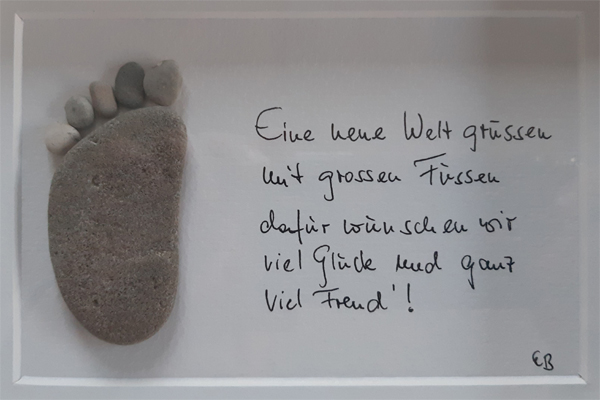 Eine neue Welt grüssen
mit grossen Füssen
dafür wünschen wir
viel Glück und ganz
viel Freud'!
EB